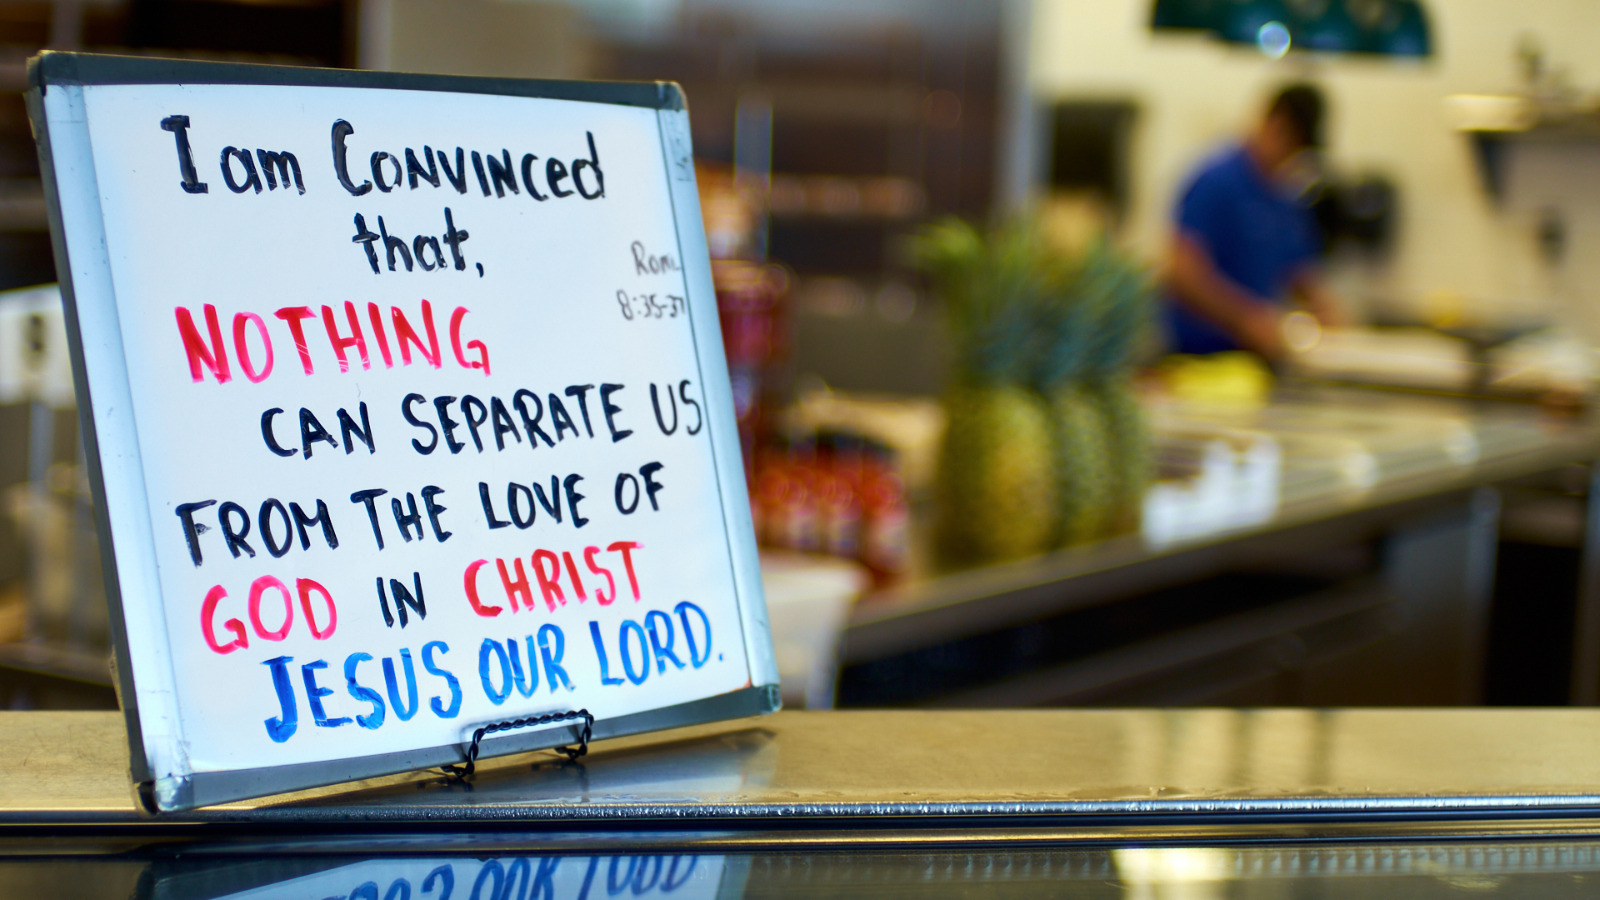 I am CONVINCed
that,
Rom.
8:35-37
NOTHING
CAN SEPARATE US
FROM THE LOVE OF
GOD IN CHRIST
JESUS OUR LORD.